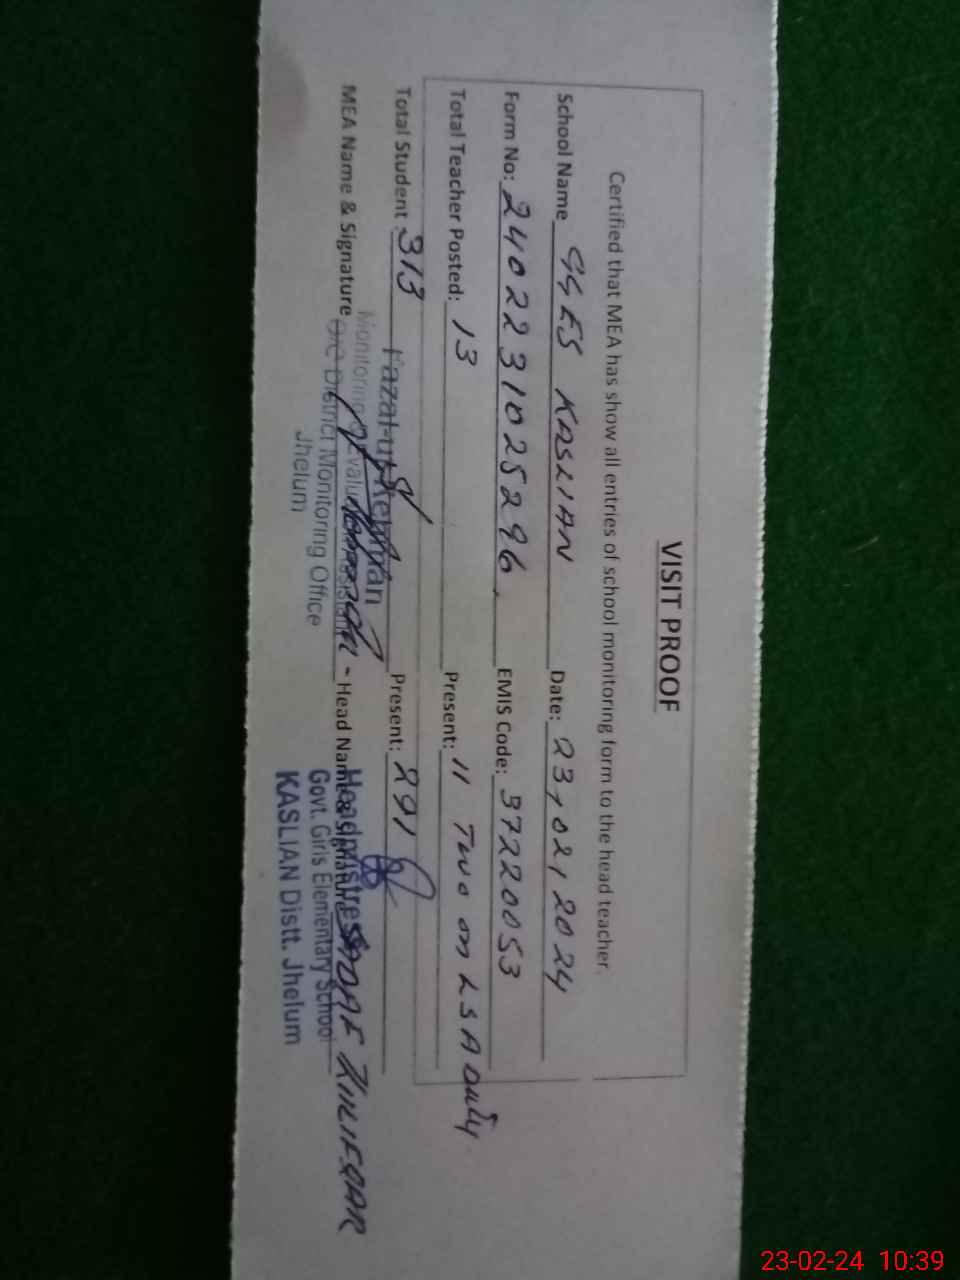 VISIT PROOF
Certified that MEA has show all entries of school monitoring form to the head teacher.
School Name GGES KASLIAN Date: 23,02,2024
Form No: 2402231025296, EMIS Code: 37220053
Total Teacher Posted: 13 Present: 11 Two on LSA Duty
Total Student: 313 Present: 291
MEA Name & Signature Head Name & Signature ZULIFQAR
Fazal-ur-Rehman
Monitoring & Evaluation Assistant
O/O District Monitoring Office
Jhelum
Headmistress
Govt. Girls Elementary School
KASLIAN Distt. Jhelum
23-02-24 10:39